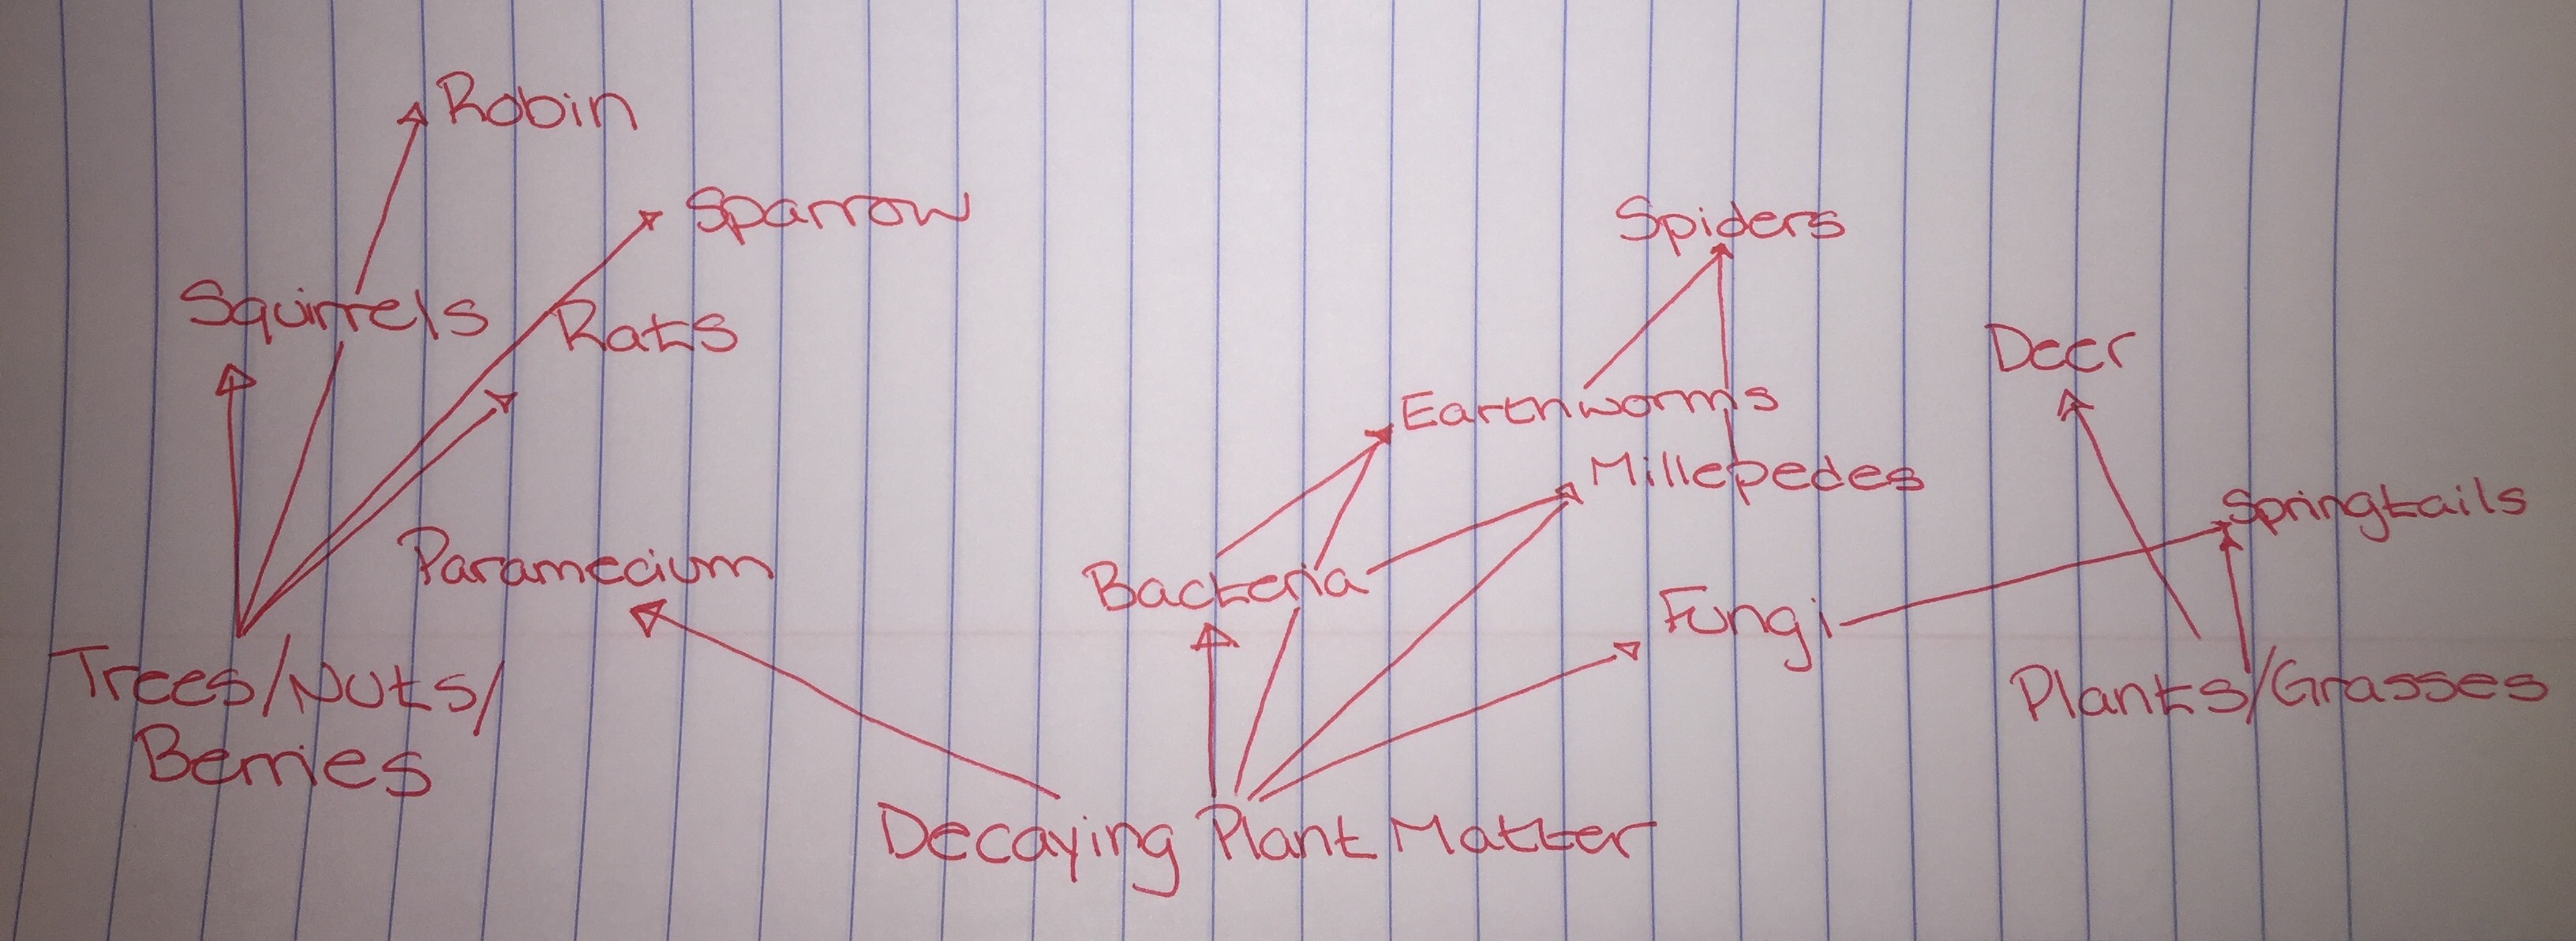 Robin
Sparrow
Spiders
Squirrels
Rats
Deer
Earthworms
Millepedes
Springtails
Paramecium
Bacteria
Fungi
Trees/Nuts/
Berries
Plants/Grasses
Decaying Plant Matter